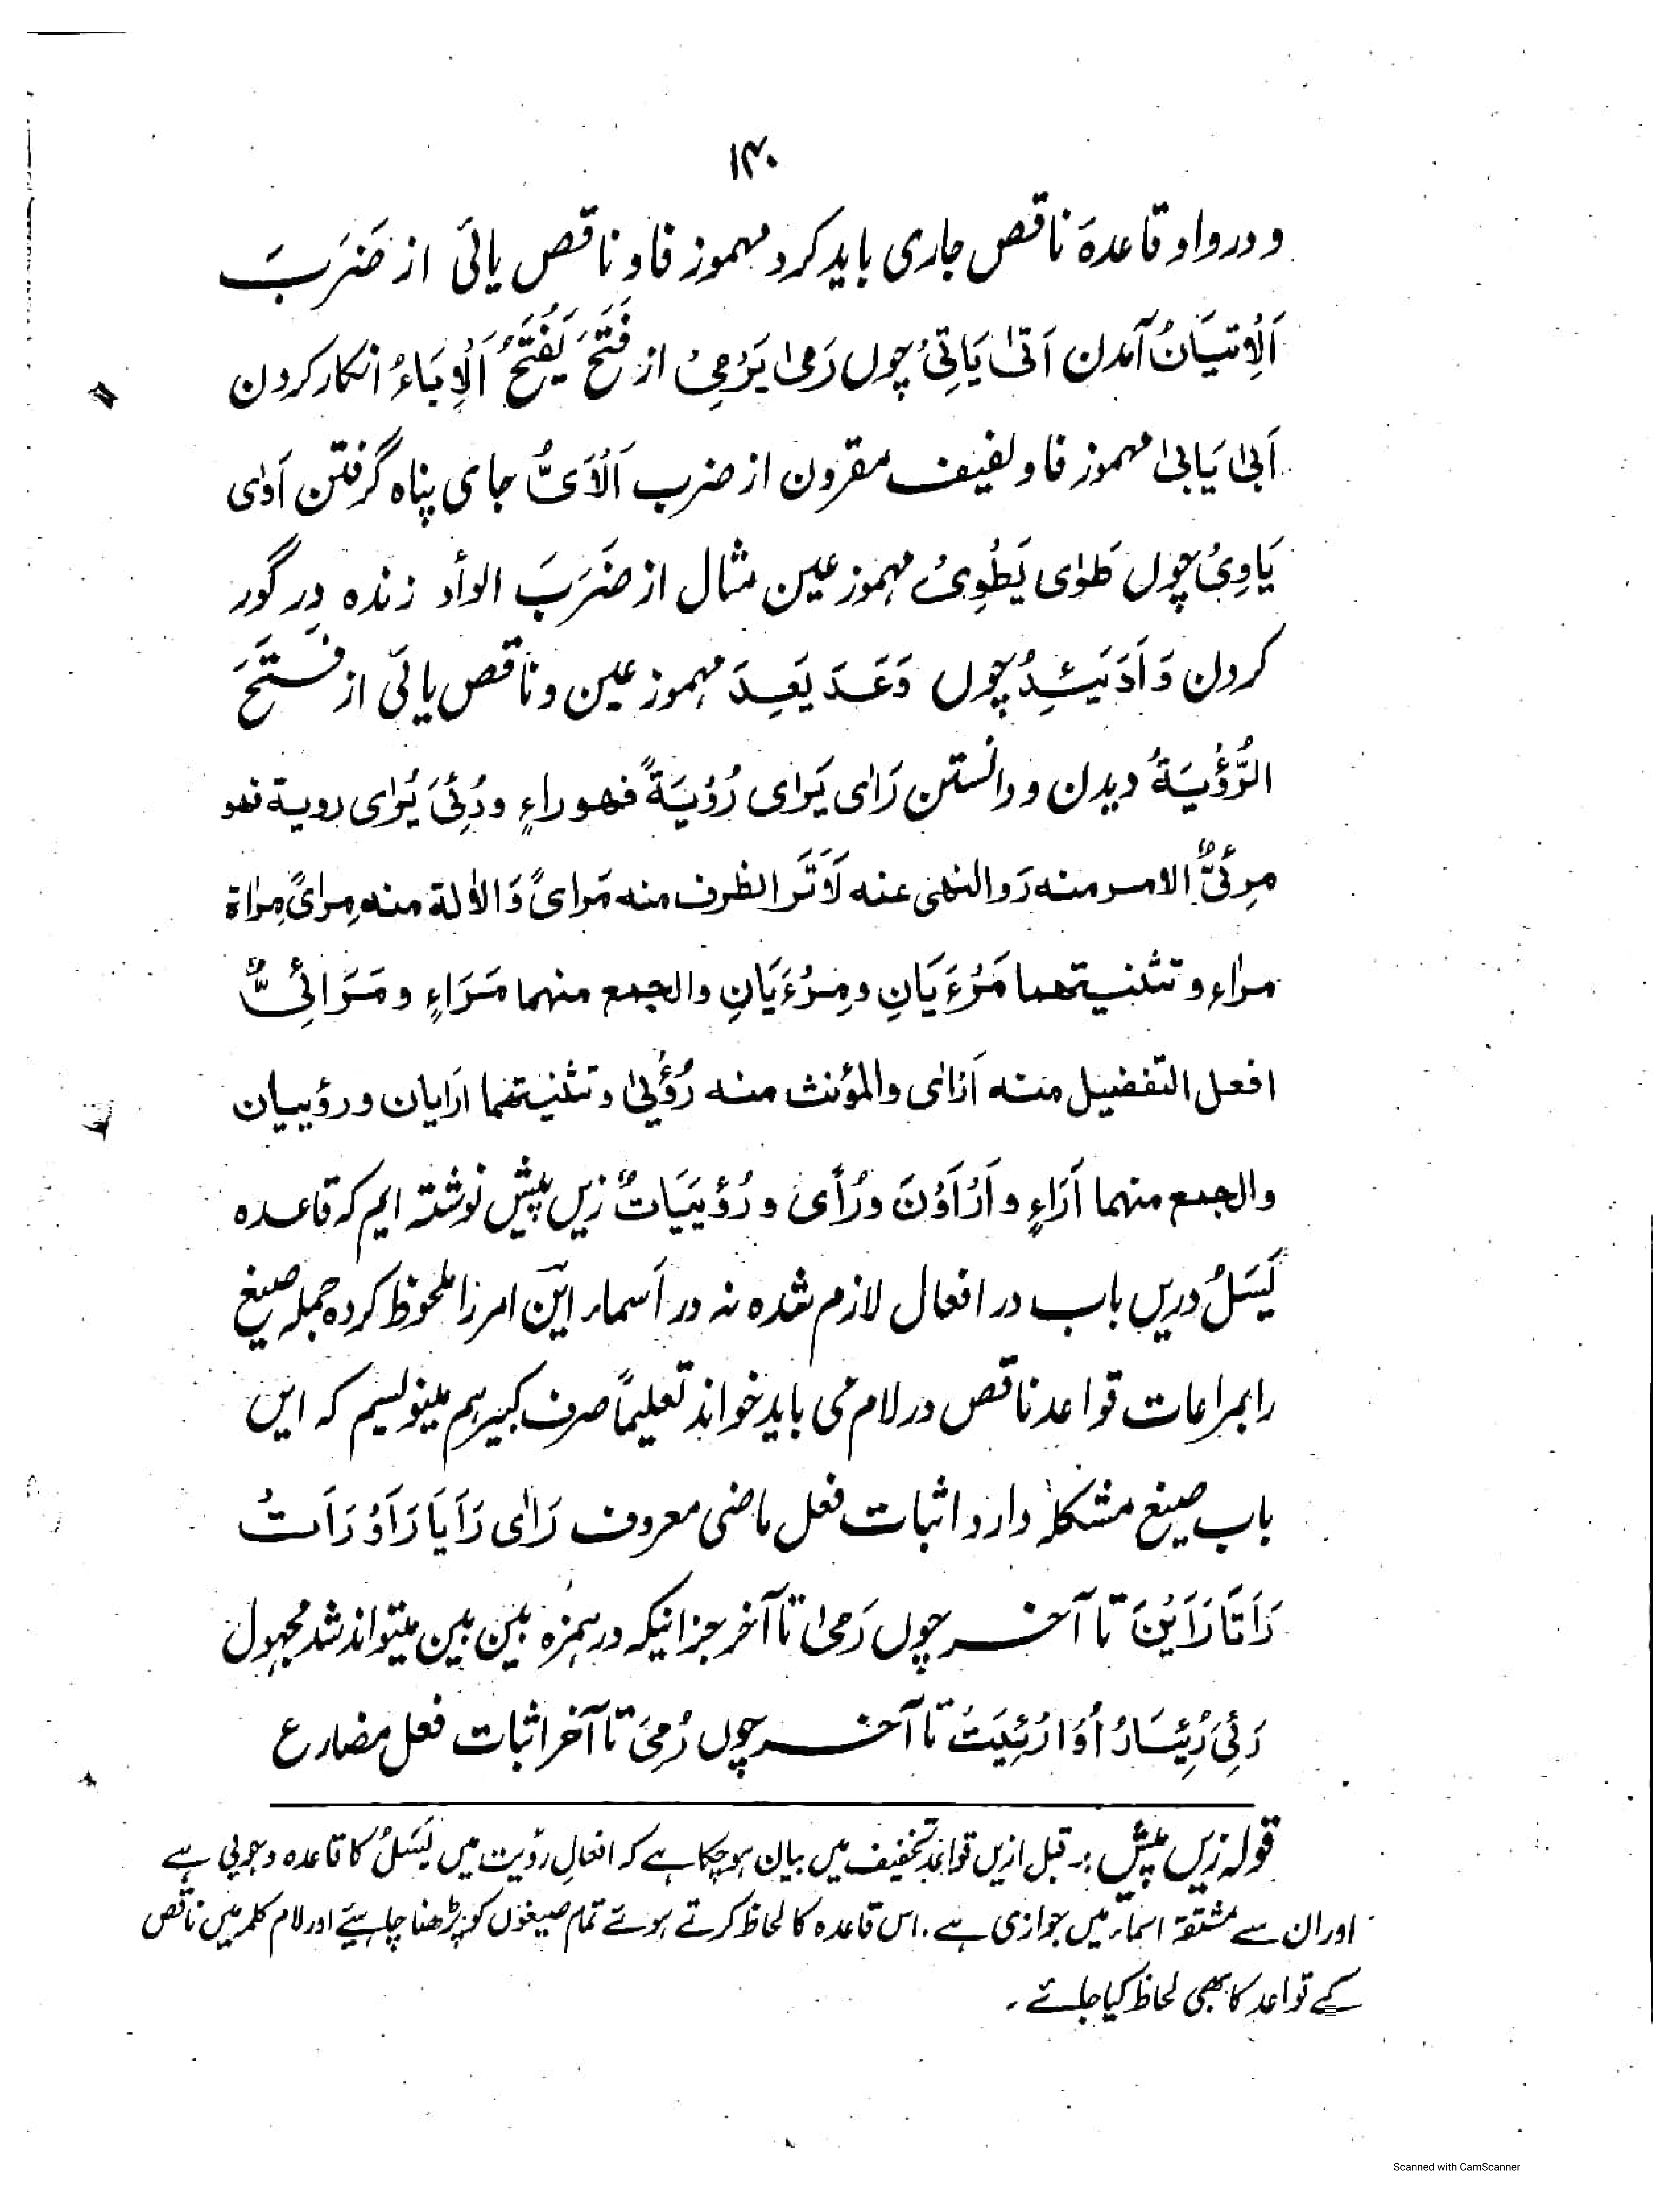 ۱۴۰
و در واو قاعدۂ ناقص جاری باید کرد مہموز فا و ناقص یائی از ضَرَبَ
اَلْاِتْیَانُ آمدن اَتٰی یَاتِیْ چوں رَمیٰ یَرْمِیْ از فَتَحَ یَفْتَحُ اَلْاِبَاءُ انکار کردن
اَبیٰ یَابیٰ مہموز فا و لفیف مقرون از ضرب اَلْاَیُّ جای پناہ گرفتن اَوٰی
یَاوِیْ چوں طَوٰی یَطْوِیْ مہموز عین مثال از ضَرَبَ الوأد زندہ در گور
کردن وَاَدَ یَئِدُ چوں وَعَدَ یَعِدَ مہموز عین و ناقص یائی از فَتَحَ
الرُّؤْیَةُ دیدن و دانستن رَاٰی یَرٰی رُؤْیَةً فهو راءٍ ورُئِیَ یُرٰی رویة فهو
مرئیٌّ الامر منه رَ والنهی عنه لَاتَرَ الظرف منه مَرایً وَالاٰلة منه مِرایً مِراٰة
مراٰء و تثنیتهما مَرْءَیَانِ ومِرْءَیَانِ والجمع منهما مَرَاءٍ و مَرَائِیُّ
افعل التفضیل منه اَرْاٰی والمؤنث منه رُؤْییٰ و تثنیتهما ارَایان و رؤییان
والجمع منهما اَرَاءٍ و اَرْاَوْنَ و رُأًی و رُؤْیَیَاتٌ زیں پیش نوشتہ ایم کہ قاعدہ
یَسَلُ دریں باب در افعال لازم شدہ نہ در اَسماء ایں امر را ملحوظ کردہ جملہ صیغ
را بمراعات قواعد ناقص در لام می باید خواند تعلیماً صرف کبیر ہم مینویسیم کہ ایں
باب صیغ مشکلہ دارد اثبات فعل ماضی معروف رَاٰی رَاَیَا رَاَوْ رَاَتْ
رَاَتَا رَاَیْنَ تا آخر چوں رَمیٰ تا آخر جز اینکہ در ہمزہ بین بین میتواند شد مجہول
رُئِیَ رُئِیَا رُاُوْا رُئِیَتْ تا آخر چوں رُمِیَ تا آخر اثبات فعل مضارع
قولہ زیں پیش :۔ قبل ازیں قواعد تخفیف میں بیان ہو چکا ہے کہ افعالِ رؤیت میں یَسَلُ کا قاعدہ وجوبی ہے
اور ان سے مشتقہ اسماء میں جوازی ہے ۔ اس قاعدہ کا لحاظ کرتے ہوئے تمام صیغوں کو پڑھنا چاہیئے اور لام کلمہ میں ناقص
کے قواعد کا بھی لحاظ کیا جائے ۔
Scanned with CamScanner